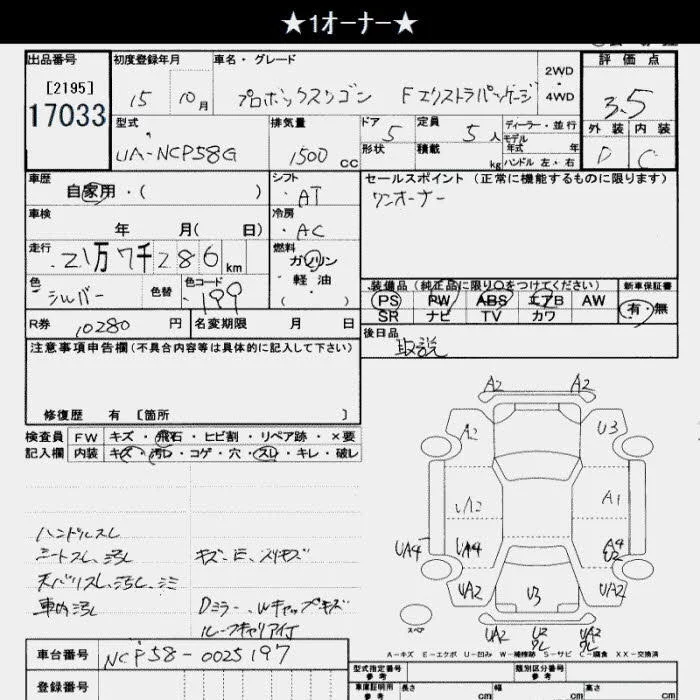 ★1オーナー★
出品番号 初度登録年月 車名・グレード 2WD・4WD 評価点
[2195]
17033
15 10月 プロボックスワゴン Fエクストラパッケージ 3.5
型式 排気量 ドア 5 定員 5人 ディーラー・並行 外装 内装
UA-NCP58G 1500cc 形状 積載 kg モデル年式 年 D C
ハンドル 左・右
車歴 シフト セールスポイント(正常に機能するものに限ります)
自家用・( ) AT ワンオーナー
車検 冷房
年 月( 日) AC
走行 燃料
21万7千286km ガソリン・軽油( )
色 シルバー 色替 色コード 199
装備品(純正品に限り○をつけてください) 新車保証書
PS PW ABS エアB AW 有・無
SR ナビ TV カワ
R券 10280円 名変期限 月 日
後日品 取説
注意事項申告欄(不具合内容等は具体的に記入して下さい)
修復歴 有 [箇所 ]
検査員 FW キズ・飛石・ヒビ割・リペア跡・×要
記入欄 内装 キズ・汚レ・コゲ・穴・スレ・キレ・破レ
ハンドルスレ
シートスレ、汚レ キズ、E、スリキズ
天バリスレ、汚レ、シミ
車内汚レ Dミラー、Wキャップキズ
ルーフキャリア付
A2 A2
A2 U3
UA2 A1
UA4 UA4 A4 U2
UA2 U3 UA2
スペア
UA2 U2 UA2
A-キズ E-エクボ U-凹み W-補修跡 S-サビ C-腐食 XX-交換済
車台番号 NCP58-0025197
登録番号
型式指定番号 参考 類別区分番号 参考
車庫証明用 参考 長さ cm 幅 cm 高さ cm